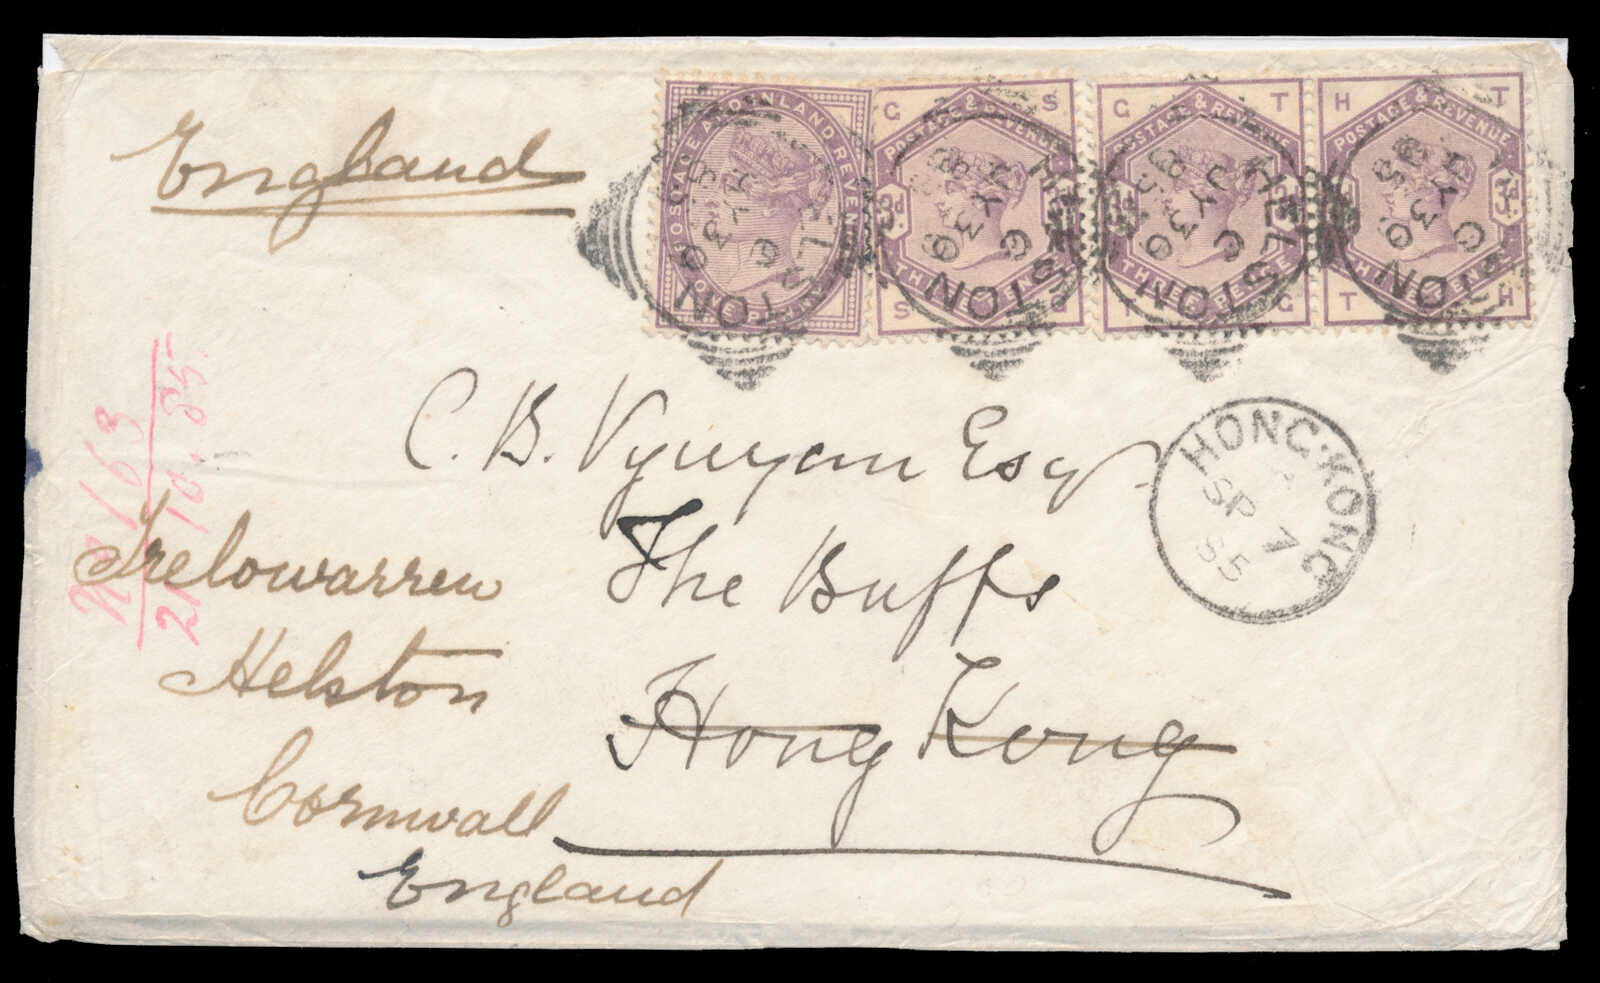 England
POSTAGE AND INLAND REVENUE
G S
POSTAGE & REVENUE
3d
THREE PENCE
S G
G T
POSTAGE & REVENUE
3d
THREE PENCE
T G
H T
POSTAGE & REVENUE
3d
THREE PENCE
T H
HELSTON
C
JY 30
85
HELSTON
C
JY 30
85
HELSTON
C
JY 30
85
HELSTON
C
JY 30
85
C. B. Vyvyan Esqr
The Buffs
Hong Kong
HONG·KONG
A
SP 7
85
No 163
21.10.85
Trelowarren
Helston
Cornwall
England